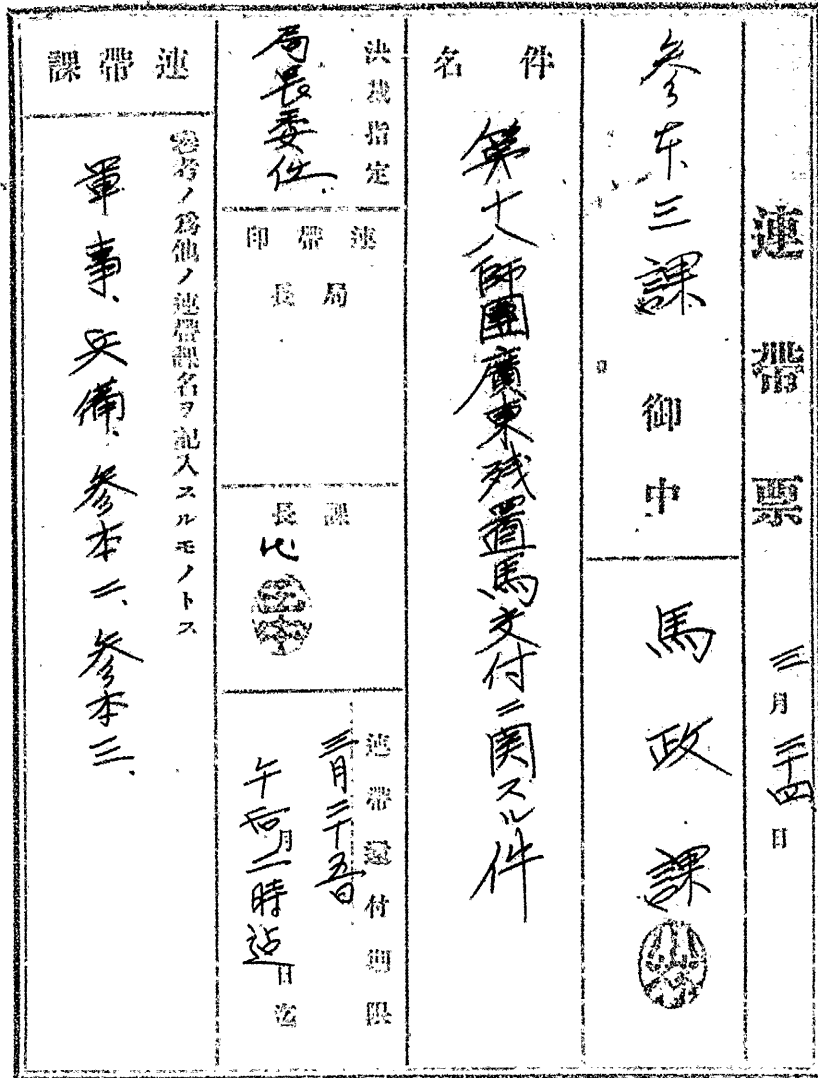 連帶票 三月二十四日
参本三課 御中
馬政課
件名
第十八師團廣東残置馬交付ニ関スル件
決裁指定
局長委任
連帶印
局長
課長
連帶還付期限
三月二十五日
午后二時迄
月 日迄
連帶課
參考ノ爲他ノ連帶課名ヲ記入スルモノトス
軍事、兵備、参本二、参本三、